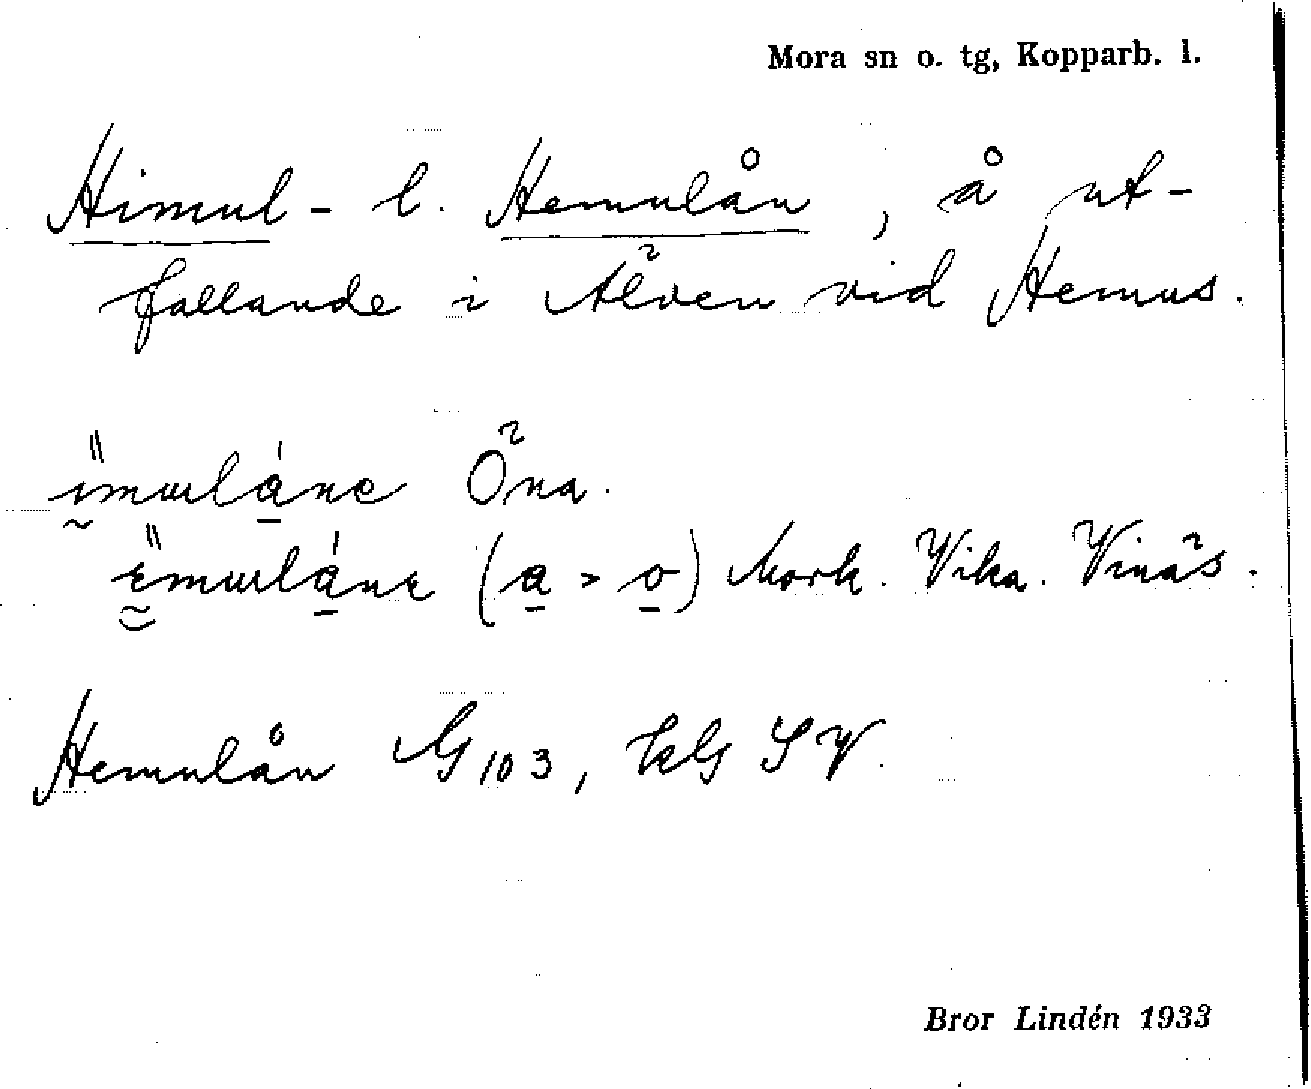 Mora sn o. tg, Kopparb. l.
Himul- l. Hemulån, å ut-
fallande i Älven vid Hemus.
Öna.
(a > o) Mork. Vika. Vinäs.
Hemulån G 103,
Bror Lindén 1933